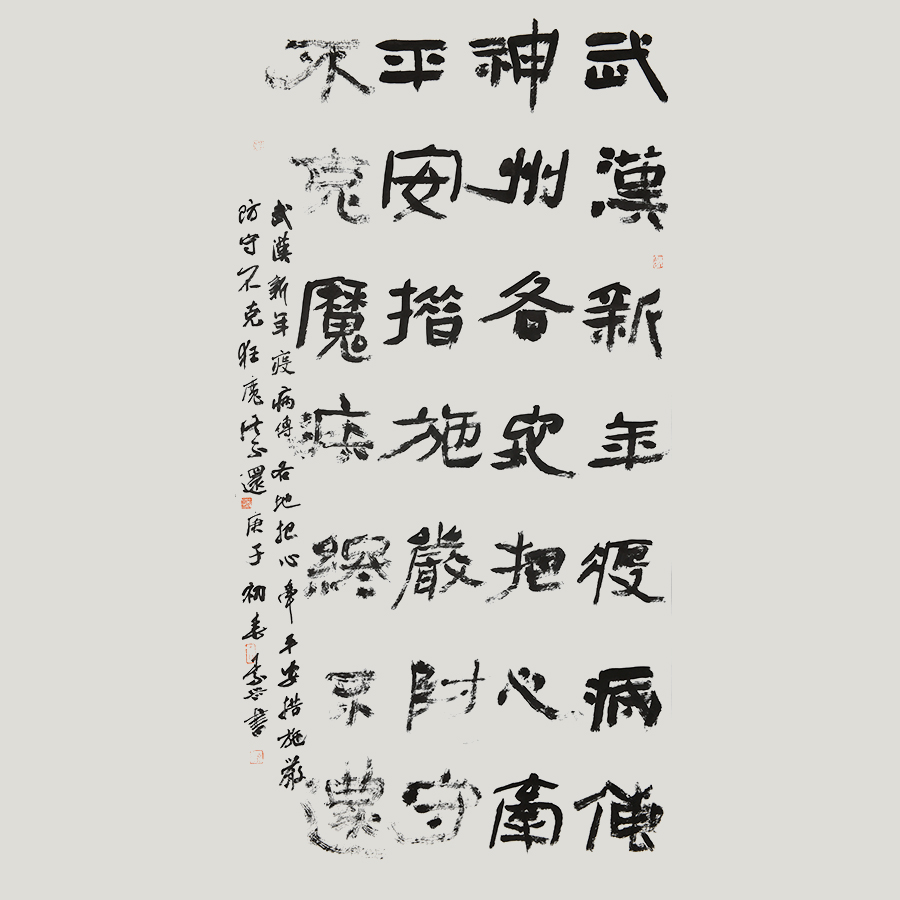 武漢新年疫病傳
神州各地把心牽
平安措施嚴防守
不克魔疾終不還
武漢新年疫病傳各地把心牽平安措施嚴
防守不克狂魔不還庚子初春書